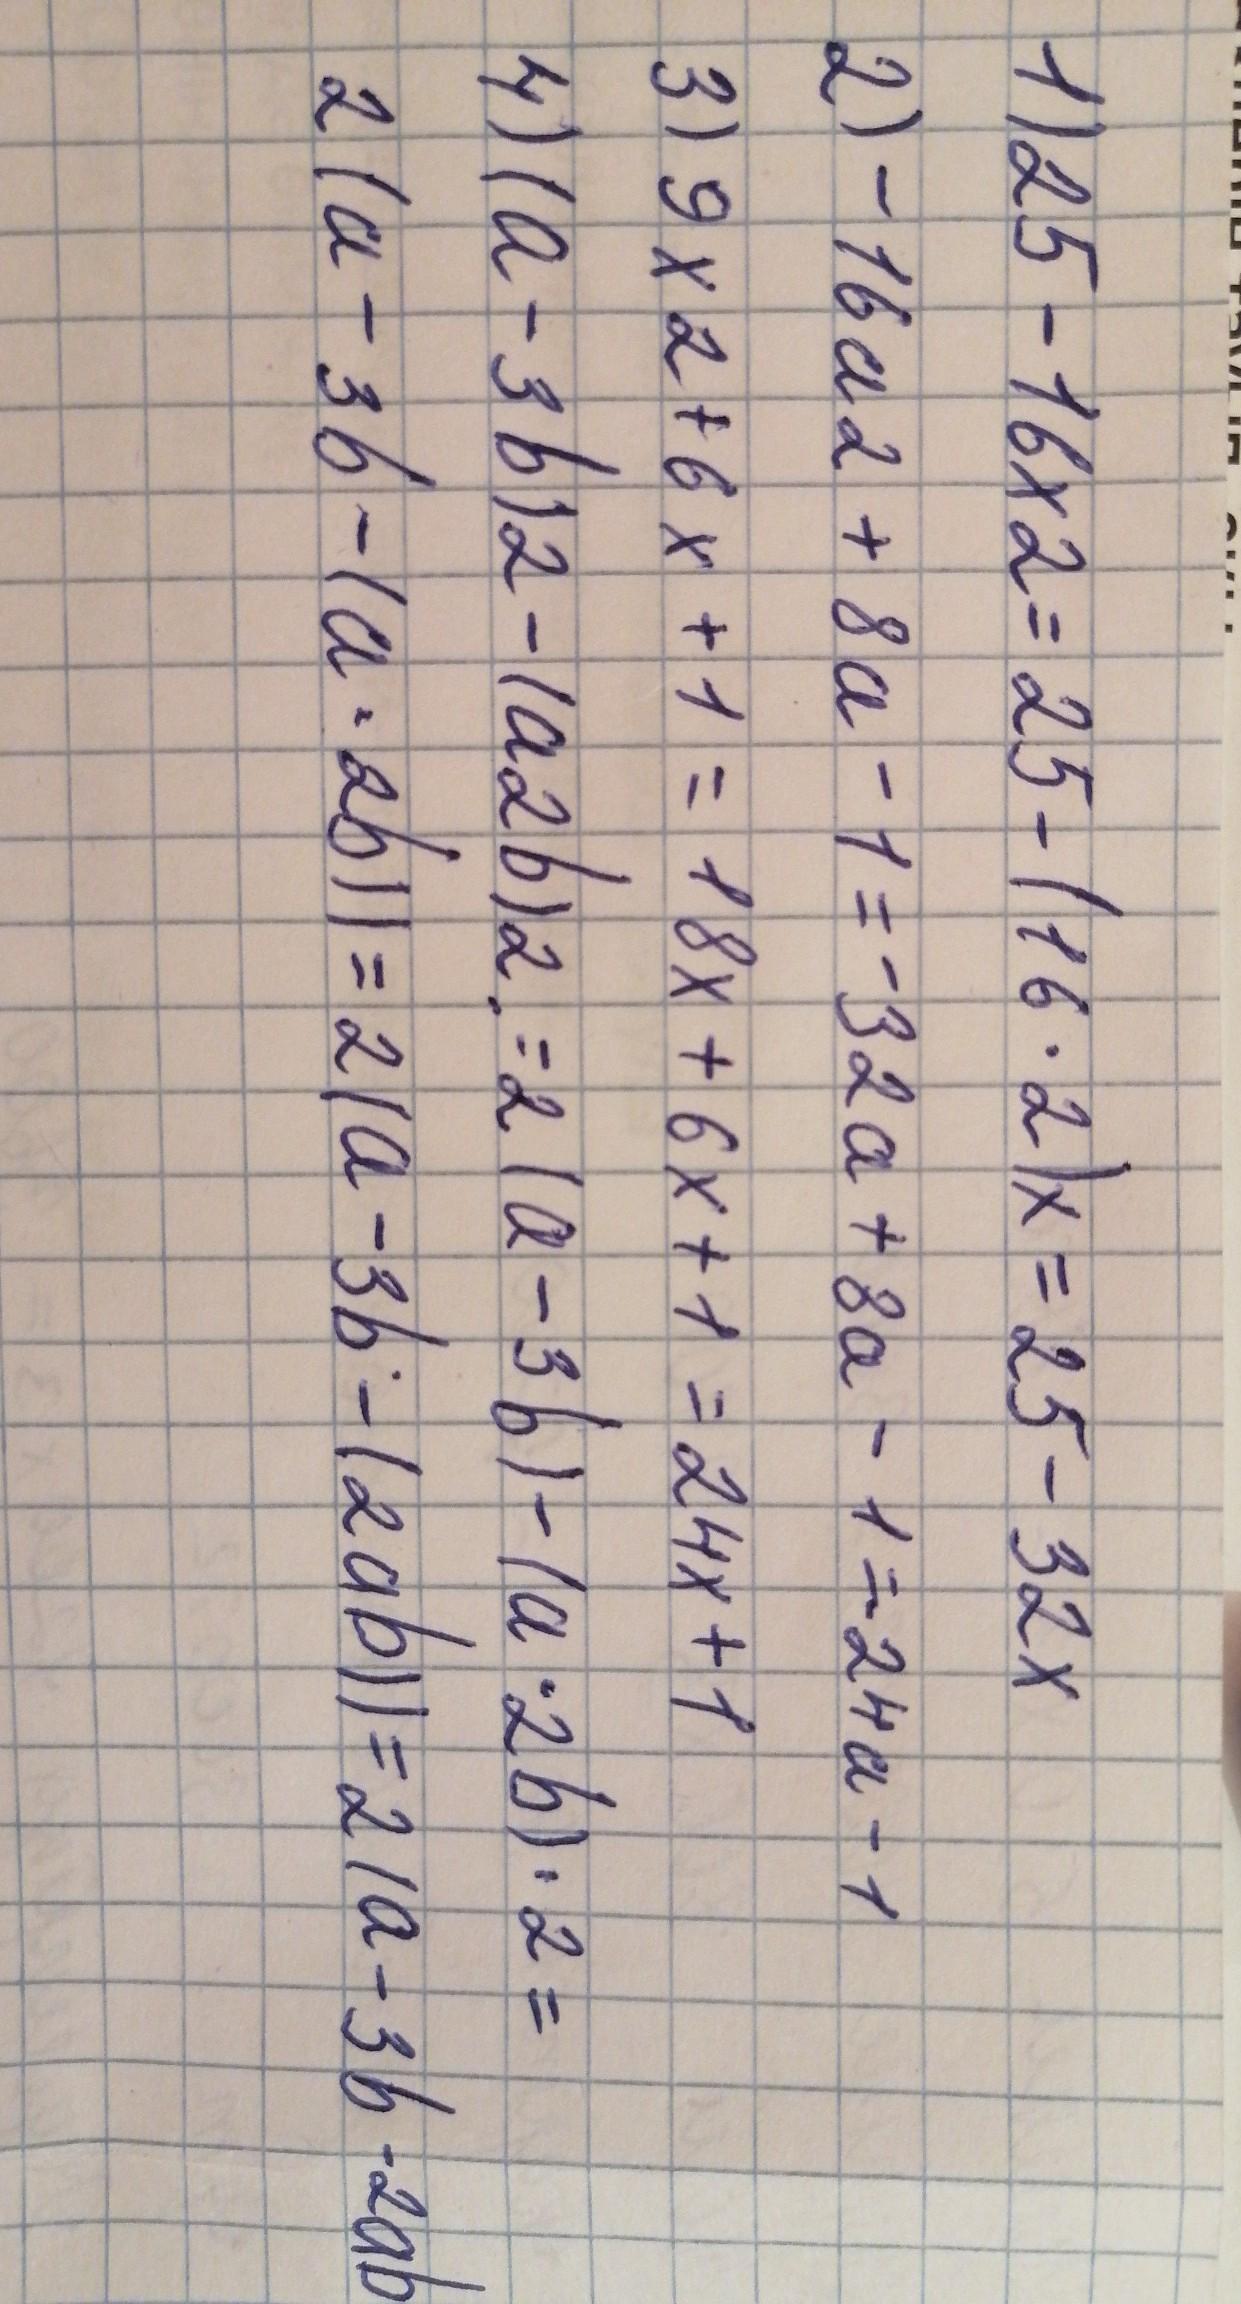 1) 25 - 16x2 = 25 - (16 · 2)x = 25 - 32x
2) - 16a2 + 8a - 1 = - 32a + 8a - 1 = - 24a - 1
3) 9x2 + 6x + 1 = 18x + 6x + 1 = 24x + 1
4) (a - 3b)2 - (a2b)2. = 2(a - 3b) - (a · 2b) · 2 =
2(a - 3b - (a · 2b)) = 2(a - 3b - (2ab)) = 2(a - 3b - 2ab